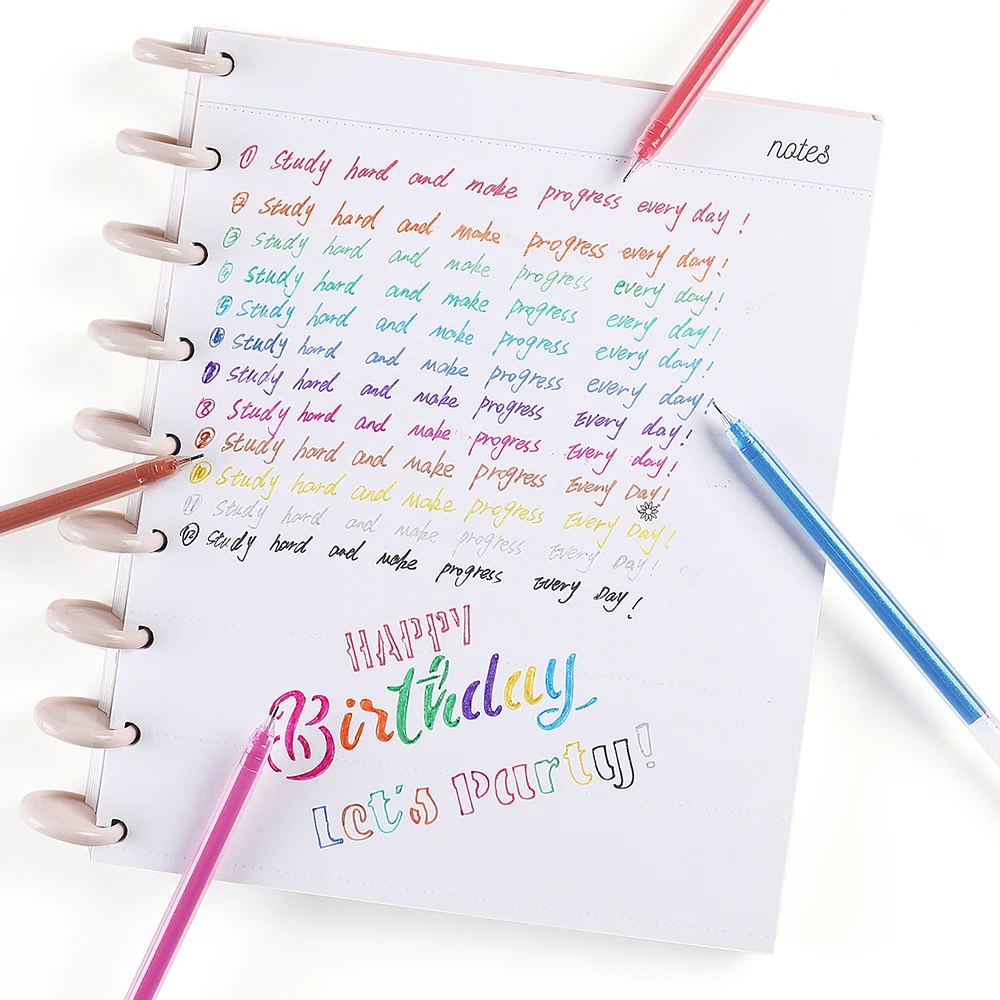 notes
① Study hard and make progress every day!
② Study hard and make progress every day!
③ Study hard and make progress every day!
④ Study hard and make progress every day!
⑤ Study hard and make progress every day!
⑥ Study hard and make progress every day!
⑦ Study hard and make progress Every day!
⑧ Study hard and make progress Every day!
⑨ Study hard and make progress Every Day!
⑩ Study hard and make progress Every Day!
⑪ Study hard and make progress Every Day!
⑫ Study hard and make progress Every Day!
HAPPY
Birthday
Let's Party!